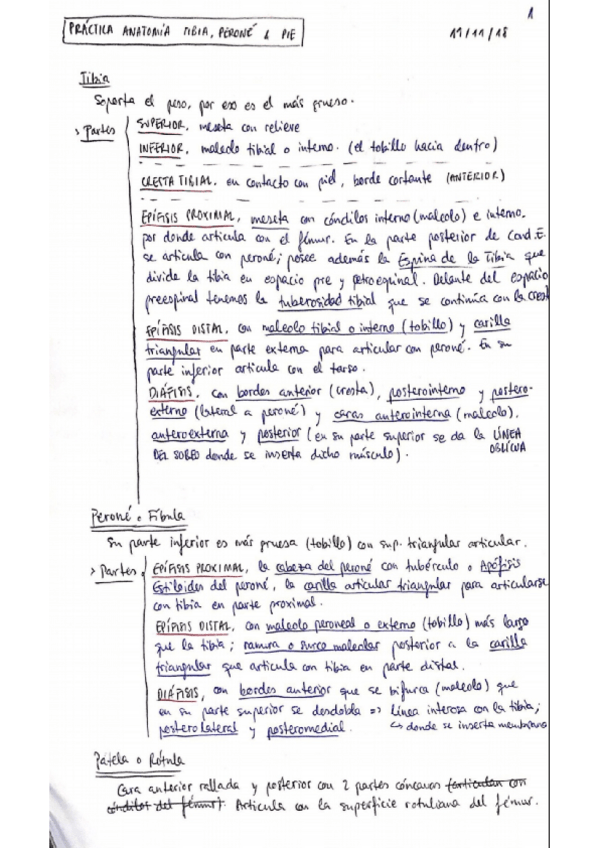 1
PRÁCTICA ANATOMÍA TIBIA, PERONÉ & PIE
19/11/18
Tibia
Soporta el peso, por eso es el más grueso.
> Partes
SUPERIOR, meseta con relieve
INFERIOR, maleolo tibial o interno. (el tobillo hacia dentro)
CRESTA TIBIAL. en contacto con piel, borde cortante (ANTERIOR)
EPÍFISIS PROXIMAL, meseta con cóndilos interno (maleolo) e interno.
por donde articula con el fémur. En la parte posterior de Cond. E.
se articula con peroné; posee además la Espina de la Tibia que
divide la tibia en espacio pre y retroespinal. Delante del espacio
preespinal tenemos la tuberosidad tibial que se continúa con la crest
EPÍFISIS DISTAL, con maleolo tibial o interno (tobillo) y carilla
triangular en parte externa para articular con peroné. En su
parte inferior articula con el tarso.
DIÁFISIS. con bordes anterior (cresta), posterointerno y postero-
externo (lateral a peroné) y caras anterointerna (maleolo).
anteroexterna y posterior (en su parte superior se da la LÍNEA OBLÍCUA
DEL SOLEO donde se inserta dicho músculo).
Peroné o Fíbula
Su parte inferior es más gruesa (tobillo) con sup. triangular articular.
> Partes
EPÍFISIS PROXIMAL, la cabeza del peroné con tubérculo o Apófisis
Estiloides del peroné, la carilla articular triangular para articularse
con tibia en parte proximal.
EPÍFISIS DISTAL, con maleolo peroneal o externo (tobillo) más largo
que la tibia; ranura o surco maleolar posterior a la carilla
triangular que articula con tibia en parte distal.
DIÁFISIS, con bordes anterior que se bifurca (maleolo) que
en su parte superior se desdobla => línea interosa con la tibia;
posterolateral y posteromedial. ↳ donde se inserta membrana
Pátela o Rótula
Cara anterior rallada y posterior con 2 partes cóncavas (articulan con
cóndilos del fémur). Articula con la superficie rotuliana del fémur.